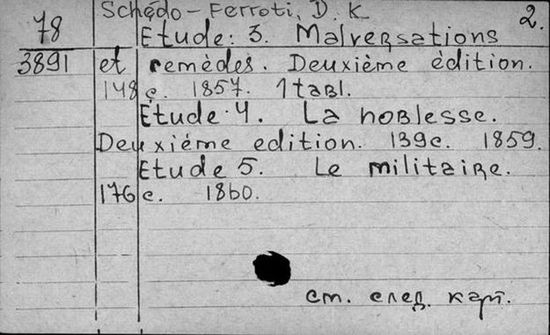 Schédo-Ferroti, D. K 2.
78 Etude: 3. Malversations
3891 et remèdes. Deuxième édition.
148 с. 1857. 1 табл.
Étude 4. La noblesse.
Deuxiéme edition. 139 с. 1859.
Etude 5. Le militaire.
176 с. 1860.
см. след. карт.